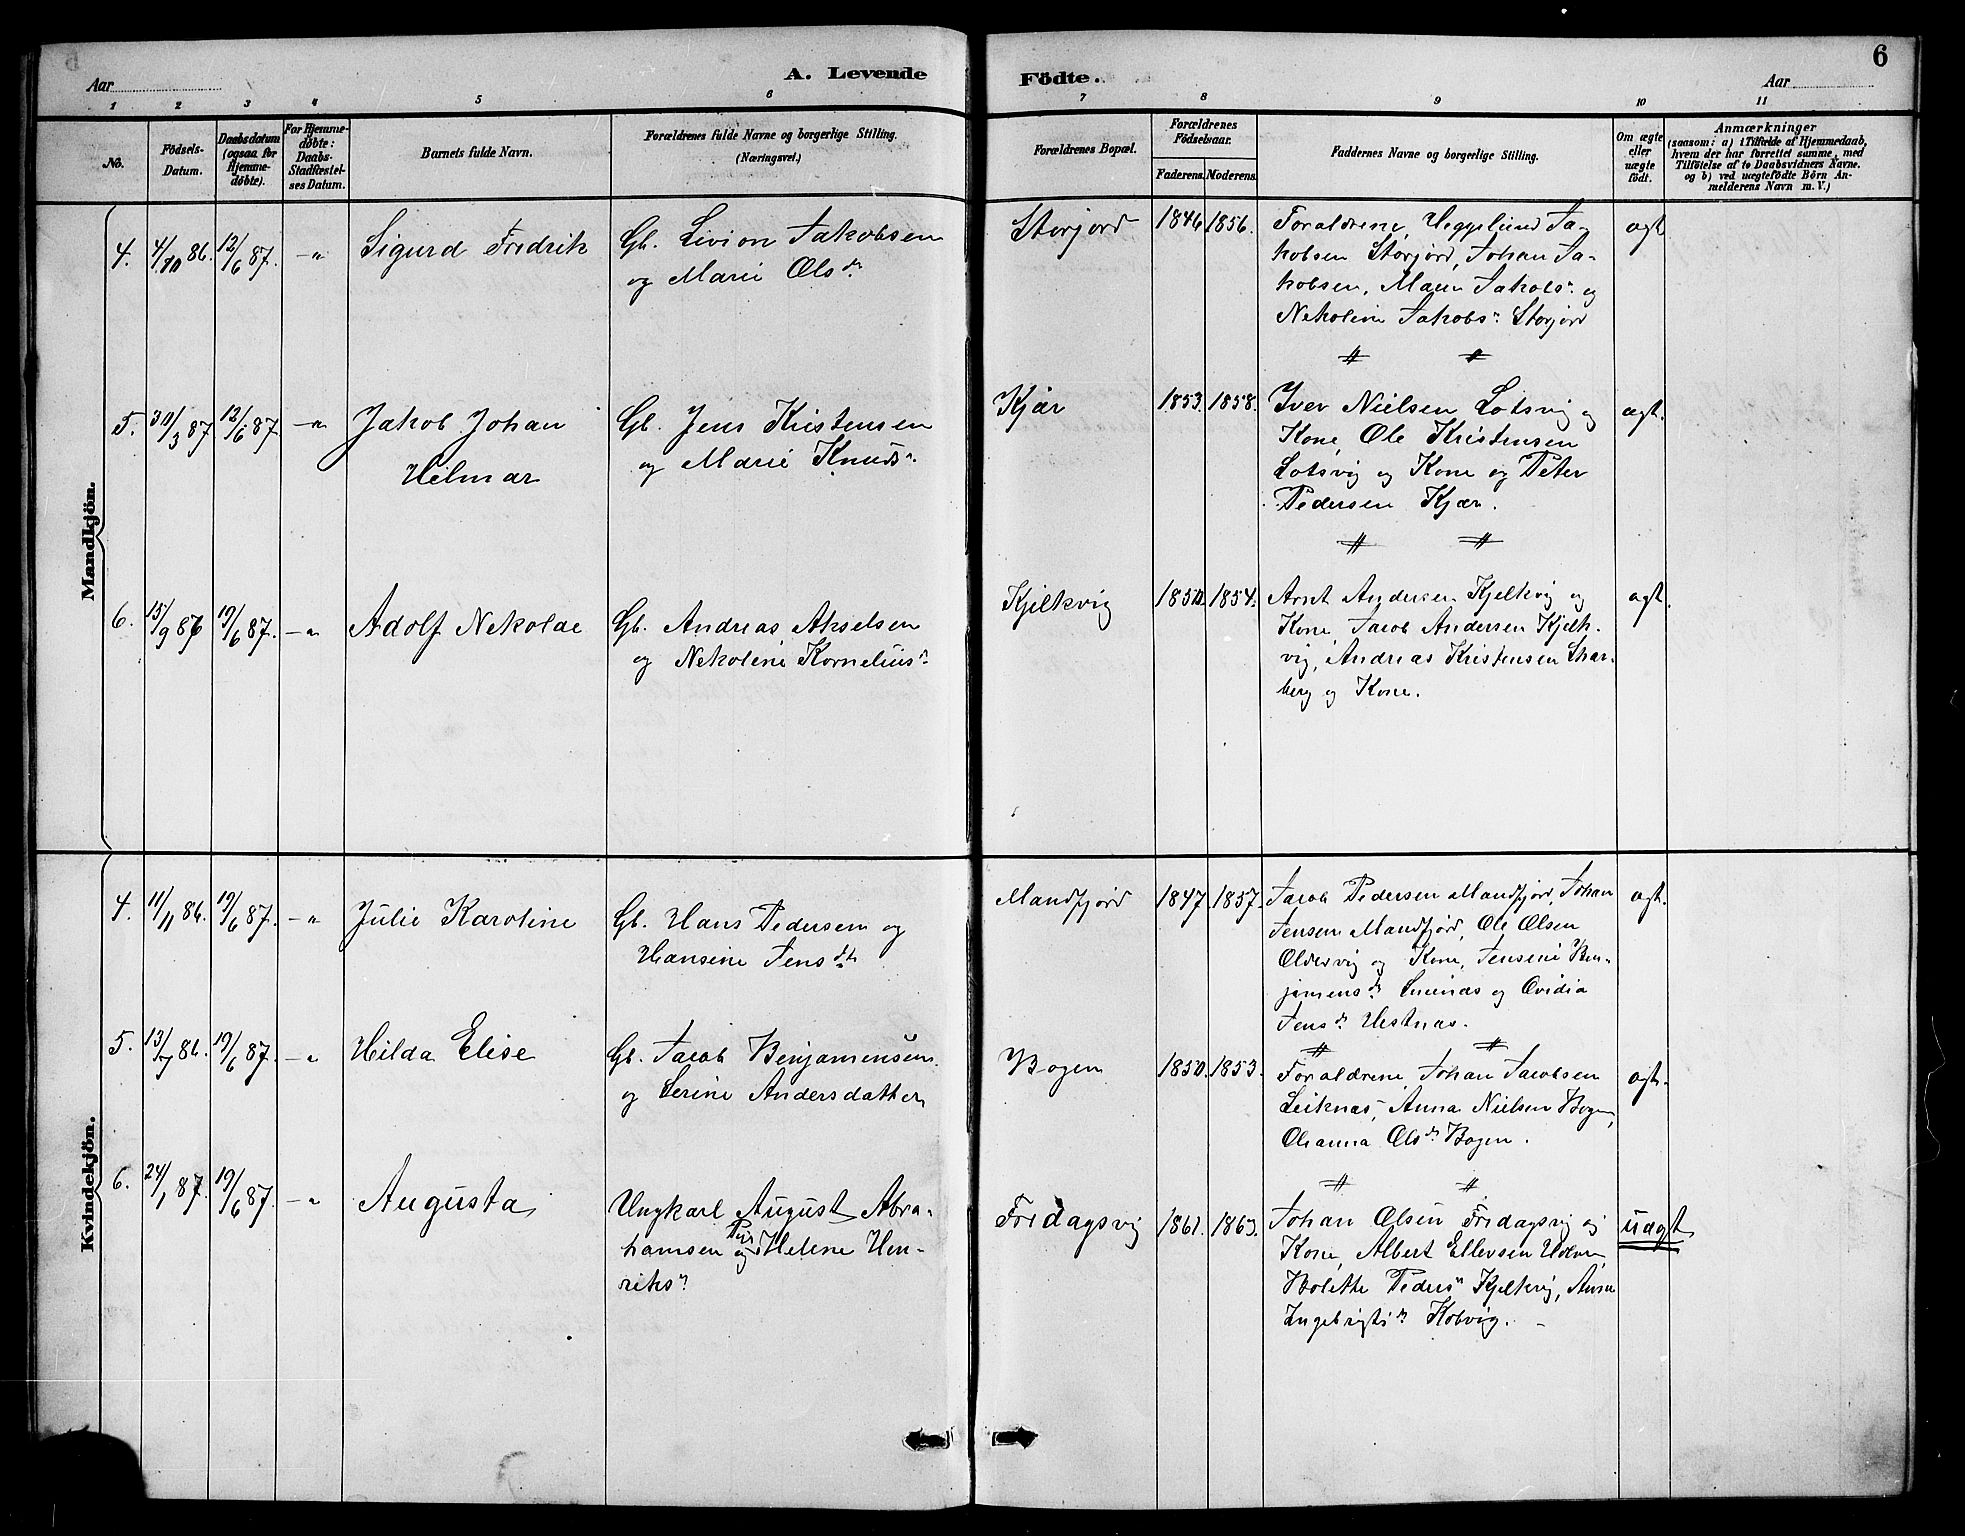 6
A. Levende Födte.
Aar
Aar
1 2 3 4 5 6 7 8 9 10 11
No.
Födsels-
Datum.
Daabsdatum
(ogsaa for
Hjemme-
döbte).
For Hjemme-
döbte:
Daabs-
Stadfæstel-
ses Datum.
Barnets fulde Navn.
Forældrenes fulde Navne og borgerlige Stilling.
(Næringsvei.)
Forældrenes Bopæl.
Forældrenes
Födselsaar.
Faderens. Moderens.
Faddernes Navne og borgerlige Stilling.
Om ægte
eller
uægte
födt.
Anmærkninger
(saasom: a) i Tilfælde af Hjemmedaab,
hvem der har forrettet samme, med
Tilföielse af to Daabsvidners Navne.
og b) ved uægtefödte Börn An-
melderens Navn m. V.)
Mandkjön.
4. 4/10 86. 12/6 87. -"
Sigurd Fredrik
Gb. Livion Jakobsen
og Marie Olsdr
Storjord 1846 1856.
Foraldrene, Heggelund Ja-
kobsen Storjord, Johan Ja-
kobsen, Maren Jakobsdr og
Nekoline Jakobsdr Storjord
agt
5. 30/3 87 12/6 87 -"
Jakob Johan
Hilmar
Gb. Jens Kristensen
og Marie Knudsdr
Kjær 1853. 1858.
Iver Nielsen Lotsvig og
Kone, Ole Kristensen
Lotsvig og Kone og Peter
Pedersen Kjær.
agt.
6. 15/9 86 19/6 87. -"
Adolf Nekolae
Gb. Andreas Akselsen
og Nekoline Korneliusdr
Kjelkvig 1850. 1854.
Arnt Andersen Kjelkvig og
Kone, Jacob Andersen Kjelk-
vig, Andreas Kristensen Skar-
berg og Kone.
agt.
Kvindekjön.
4. 11/11 86. 19/6 87. -"
Julie Karoline
Gb. Hans Pedersen og
Hansine Jensdtr
Mandfjord 1847. 1857.
Jacob Pedersen Mandfjord, Johan
Jensen Mandfjord, Ole Olsen
Oldervig og Kone, Jensine Ben-
jamensdr og Ovidia
Jensdr Vestnæs.
agt.
5. 13/7 86. 19/6 87. -"
Hilda Elise
Gb. Jacob Benjamensen
og Serine Andersdatter
Bogen 1850. 1853.
Foraldrene, Johan Jacobsen
Leiknæs, Anna Nielsen Bogen,
Ohanna Olsdr Bogen.
agt.
6. 24/1 87. 19/6 87. -"
Augusta
Ungkarl August Abra-
hamsen og Pige Helene Hen-
riksdr
Fredagsvig 1861. 1863.
Johan Olsen Fredagsvig og
Kone, Albert Ellevsen
Bolette Pedersdr Kjelkvig, Anna
Ingebrigtsdr Kobvig.
uagt